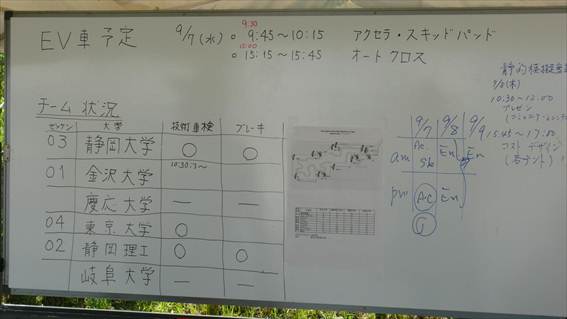 EV車予定 9/7(水) 9:30 ○ 9:45〜10:15 アクセラ・スキッドパッド
15:00 ○ 15:15〜15:45 オートクロス
チーム状況
ゼッケン 大学 技術車検 ブレーキ
03 静岡大学 ○ ○
01 金沢大学 10:30〜
慶応大学 — —
04 東京大学 ○
02 静岡理工 ○ ○
岐阜大学 — —
9/7 9/8 9/9
am Ac Sk En En
pm Ac En
G
静的模擬
(木)
10:30〜12:00
プレゼン
15:45〜17:00
コスト デザイン
(各テント)